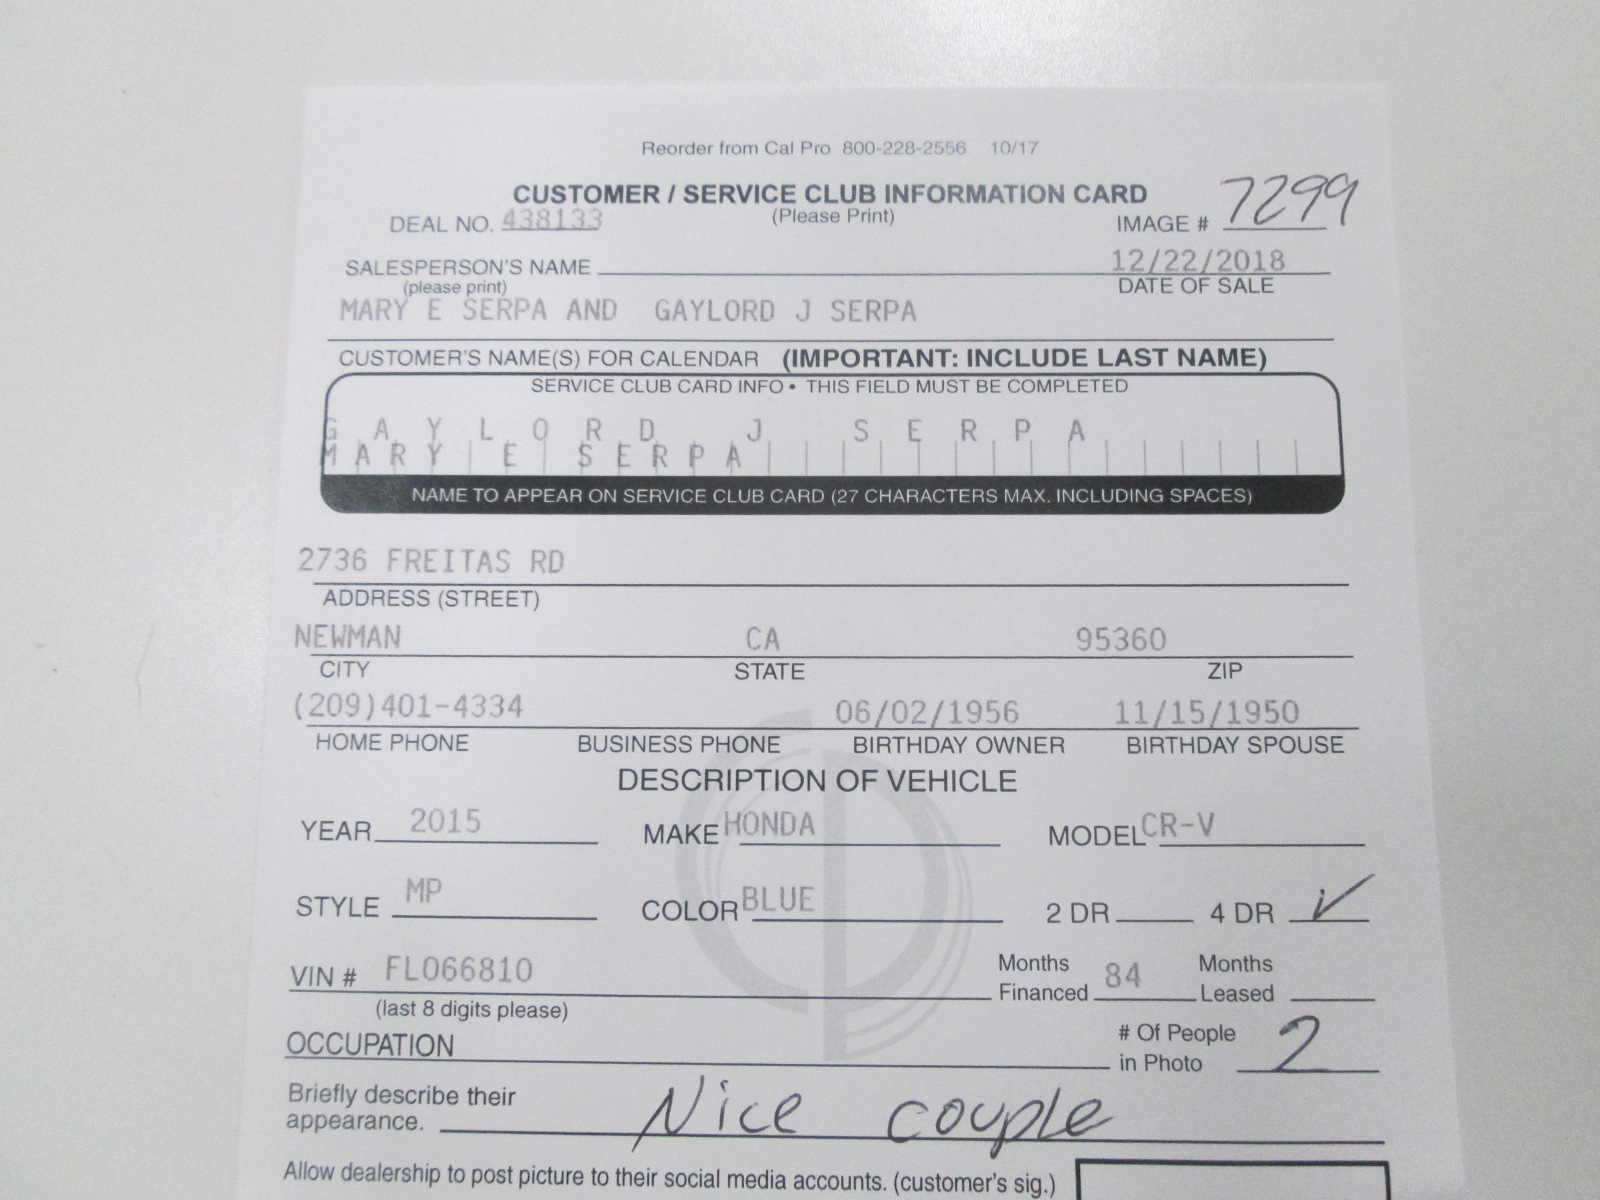 Reorder from Cal Pro 800-228-2556 10/17
CUSTOMER / SERVICE CLUB INFORMATION CARD
(Please Print)
DEAL NO. 438133
IMAGE # 7299
SALESPERSON'S NAME
(please print)
12/22/2018
DATE OF SALE
MARY E SERPA AND GAYLORD J SERPA
CUSTOMER'S NAME(S) FOR CALENDAR (IMPORTANT: INCLUDE LAST NAME)
SERVICE CLUB CARD INFO • THIS FIELD MUST BE COMPLETED
GAYLORD J SERPA
MARY E SERPA
NAME TO APPEAR ON SERVICE CLUB CARD (27 CHARACTERS MAX. INCLUDING SPACES)
2736 FREITAS RD
ADDRESS (STREET)
NEWMAN CA 95360
CITY STATE ZIP
(209)401-4334 06/02/1956 11/15/1950
HOME PHONE BUSINESS PHONE BIRTHDAY OWNER BIRTHDAY SPOUSE
DESCRIPTION OF VEHICLE
YEAR 2015 MAKE HONDA MODEL CR-V
STYLE MP COLOR BLUE 2 DR 4 DR ✓
VIN # FL066810 Months Financed 84 Months Leased
(last 8 digits please)
OCCUPATION # Of People in Photo 2
Briefly describe their appearance. Nice couple
Allow dealership to post picture to their social media accounts. (customer's sig.)